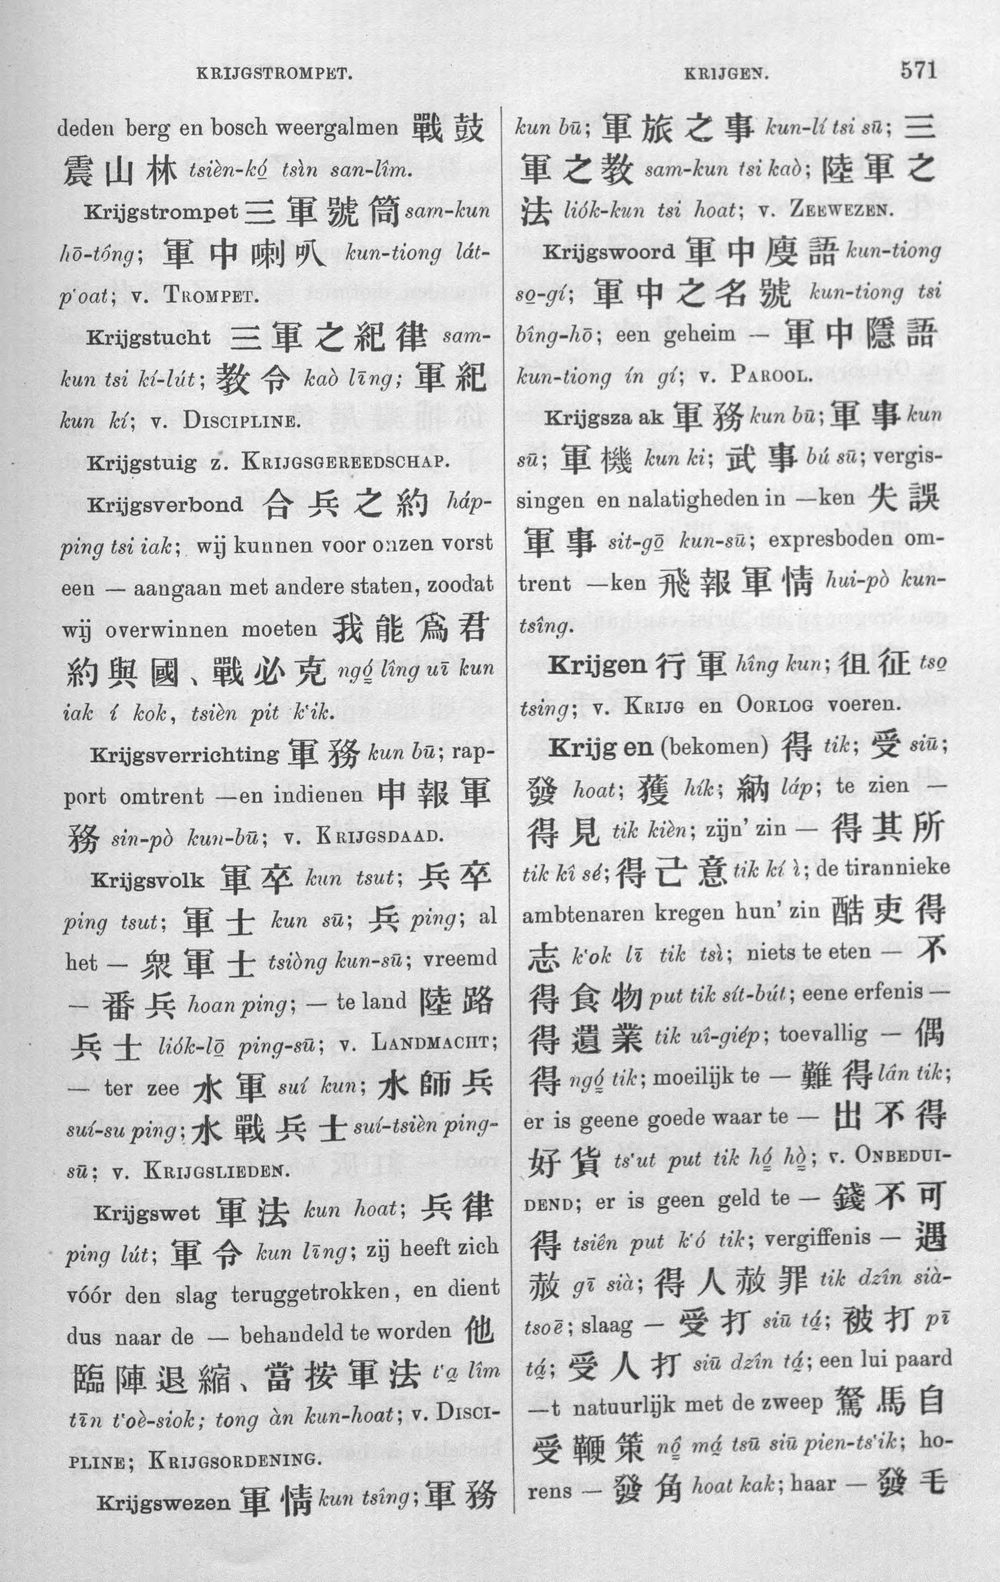 KRIJGSTROMPET.
KRIJGEN.
571
deden berg en bosch weergalmen 戰鼓
震山林 tsièn-kó̤ tsìn san-lîm.
Krijgstrompet 三軍號筒 sam-kun
hō-tông; 軍中喇叭 kun-tiong lát-
p‘oat; v. TROMPET.
Krijgstucht 三軍之紀律 sam-
kun tsi kí-lút; 教令 kaò līng; 軍紀
kun kí; v. DISCIPLINE.
Krijgstuig z. KRIJGSGEREEDSCHAP.
Krijgsverbond 合兵之約 háp-
ping tsi iak; wij kunnen voor onzen vorst
een — aangaan met andere staten, zoodat
wij overwinnen moeten 我能爲君
約與國、戰必克 ngó̤ lîng uī kun
iak í kok, tsièn pit k‘ik.
Krijgsverrichting 軍務 kun bū; rap-
port omtrent —en indienen 申報軍
務 sin-pò kun-bū; v. KRIJGSDAAD.
Krijgsvolk 軍卒 kun tsut; 兵卒
ping tsut; 軍士 kun sū; 兵 ping; al
het — 衆軍士 tsiòng kun-sū; vreemd
— 番兵 hoan ping; — te land 陸路
兵士 liók-lō̤ ping-sū; v. LANDMACHT;
— ter zee 水軍 suí kun; 水師兵
suí-su ping; 水戰兵士 suí-tsièn ping-
sū; v. KRIJGSLIEDEN.
Krijgswet 軍法 kun hoat; 兵律
ping lút; 軍令 kun līng; zij heeft zich
vóór den slag teruggetrokken, en dient
dus naar de — behandeld te worden 他
臨陣退縮、當按軍法 t‘a̤ lîm
tīn t‘oè-siok; tong àn kun-hoat; v. DISCI-
PLINE; KRIJGSORDENING.
Krijgswezen 軍情 kun tsîng; 軍務
kun bū; 軍旅之事 kun-lí tsi sū; 三
軍之教 sam-kun tsi kaò; 陸軍之
法 liók-kun tsi hoat; v. ZEEWEZEN.
Krijgswoord 軍中廋語 kun-tiong
so̤-gí; 軍中之名號 kun-tiong tsi
bîng-hō; een geheim — 軍中隱語
kun-tiong ín gí; v. PAROOL.
Krijgszaak 軍務 kun bū; 軍事 kun
sū; 軍機 kun ki; 武事 bú sū; vergis-
singen en nalatigheden in —ken 失誤
軍事 sit-gō̤ kun-sū; expresboden om-
trent —ken 飛報軍情 hui-pò kun-
tsîng.
Krijgen 行軍 hîng kun; 徂征 tso̤
tsing; v. KRIJG en OORLOG voeren.
Krijgen (bekomen) 得 tik; 受 siū;
發 hoat; 獲 hík; 納 láp; te zien —
得見 tik kièn; zijn’ zin — 得其所
tik kî sé; 得己意 tik kí ì; de tirannieke
ambtenaren kregen hun’ zin 酷吏得
志 k‘ok lī tik tsì; niets te eten — 不
得食物 put tik sít-bút; eene erfenis —
得遺業 tik uî-giép; toevallig — 偶
得 ngó̤ tik; moeilijk te — 難得 lân tik;
er is geene goede waar te — 出不得
好貨 ts‘ut put tik hó̤ hò̤; v. ONBEDUI-
DEND; er is geen geld te — 錢不可
得 tsiên put k‘ó tik; vergiffenis — 遇
赦 gī sià; 得人赦罪 tik dzîn sià-
tsoē; slaag — 受打 siū tá̤; 被打 pī
tá̤; 受人打 siū dzîn tá̤; een lui paard
—t natuurlijk met de zweep 駑馬自
受鞭策 nô̤ má̤ tsū siū pien-ts‘ik; ho-
rens — 發角 hoat kak; haar — 發毛